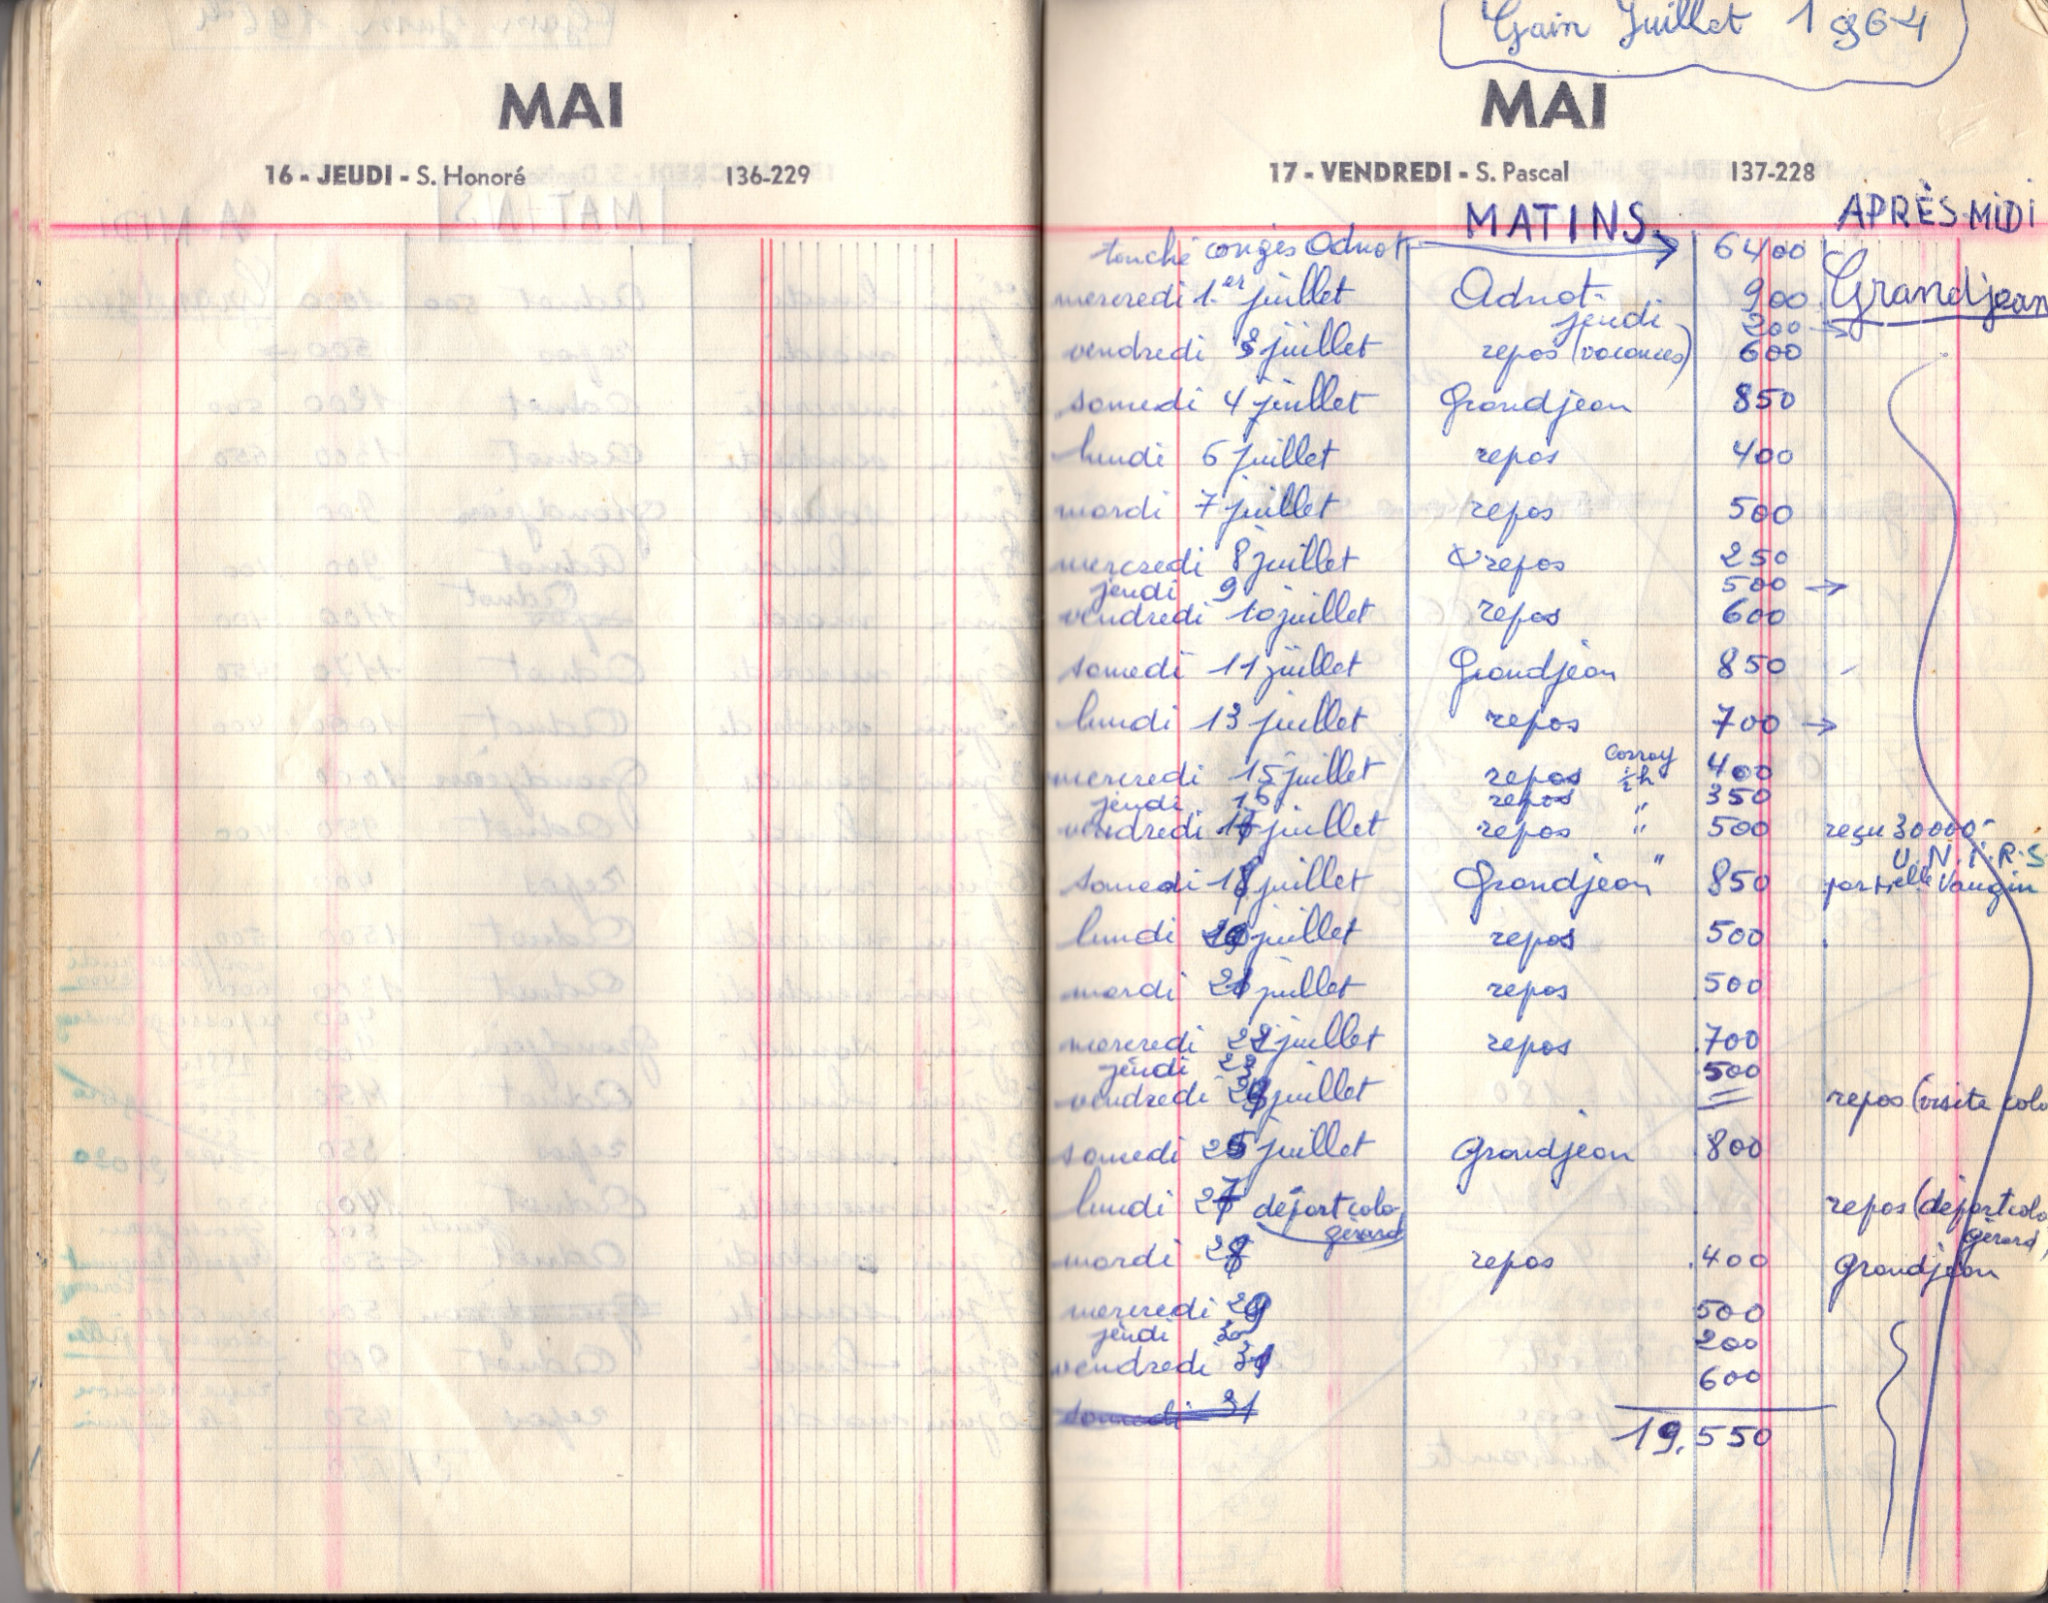 MAI
16 - JEUDI - S. Honoré 136-229
Gain Juillet 1964
MAI
17 - VENDREDI - S. Pascal 137-228
MATINS APRÈS-MIDI
touché congés Adnot → 6400
mercredi 1er juillet Adnot 900 Grandjean
jeudi 200 →
vendredi 3 juillet repos (vacances) 600
samedi 4 juillet Grandjean 850
lundi 6 juillet repos 400
mardi 7 juillet repos 500
mercredi 8 juillet repos 250
jeudi 9 500 →
vendredi 10 juillet repos 600
samedi 11 juillet Grandjean 850
lundi 13 juillet repos 700 →
mercredi 15 juillet repos Corroy ½h 400
jeudi 16 repos " 350
vendredi 17 juillet repos " 500 reçu 30000
U.N.I.R.S
samedi 18 juillet Grandjean " 850 partielle Vaugin
lundi 20 juillet repos 500
mardi 21 juillet repos 500
mercredi 22 juillet repos 700
jeudi 23 500
vendredi 24 juillet = repos (visite colo
samedi 25 juillet Grandjean 800
lundi 27 départ colo gérard repos (départ colo gérard)
mardi 28 repos 400 Grandjean
mercredi 29 500
jeudi 30 200
vendredi 31 600
samedi 31
19.550